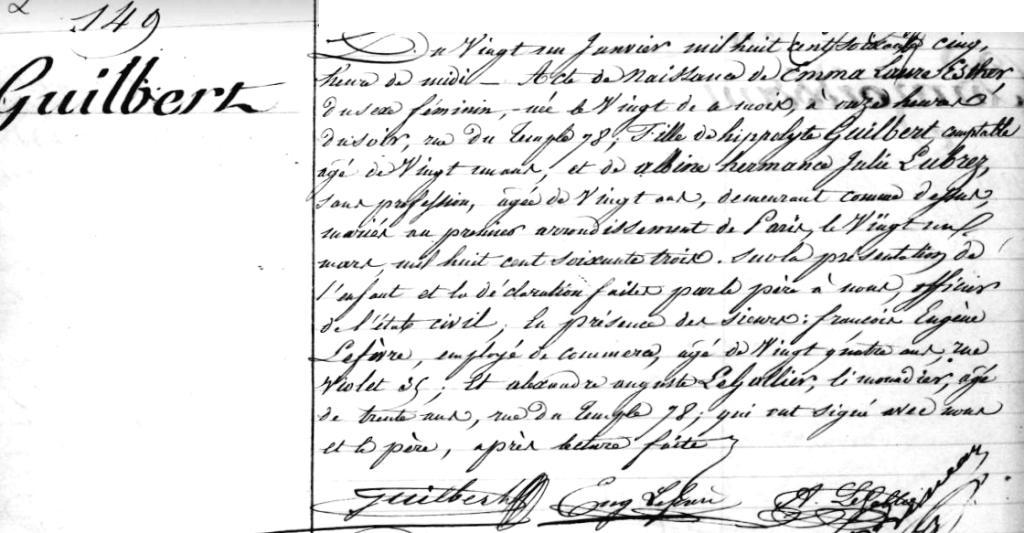 149
Guilbert
Du Vingt un Janvier mil huit cent soixante cinq,
heure de midi — Acte de Naissance de Emma Laure Esther
du sexe féminin, née le Vingt de ce mois, à onze heures
du soir, rue du Temple 78; Fille de hippolyte Guilbert, comptable
âgé de Vingt un ans, et de albine hermance Julie Lubrez,
sans profession, âgée de Vingt ans, demeurant comme dessus,
mariés au premier arrondissement de Paris, le Vingt neuf
mars, mil huit cent soixante trois. Sur la présentation de
l'enfant et la déclaration faites par le père à nous, officier
de l'état civil, En présence des sieurs: françois Eugène
Lefèvre, employé de commerce, âgé de Vingt quatre ans, rue
Violet 35; Et alexandre auguste LeGallier, limonadier, âgé
de trente ans, rue du Temple 78; qui ont signé avec nous
et le père, après lecture faite
Guilbert Eug Lefèvre A. LeGallier